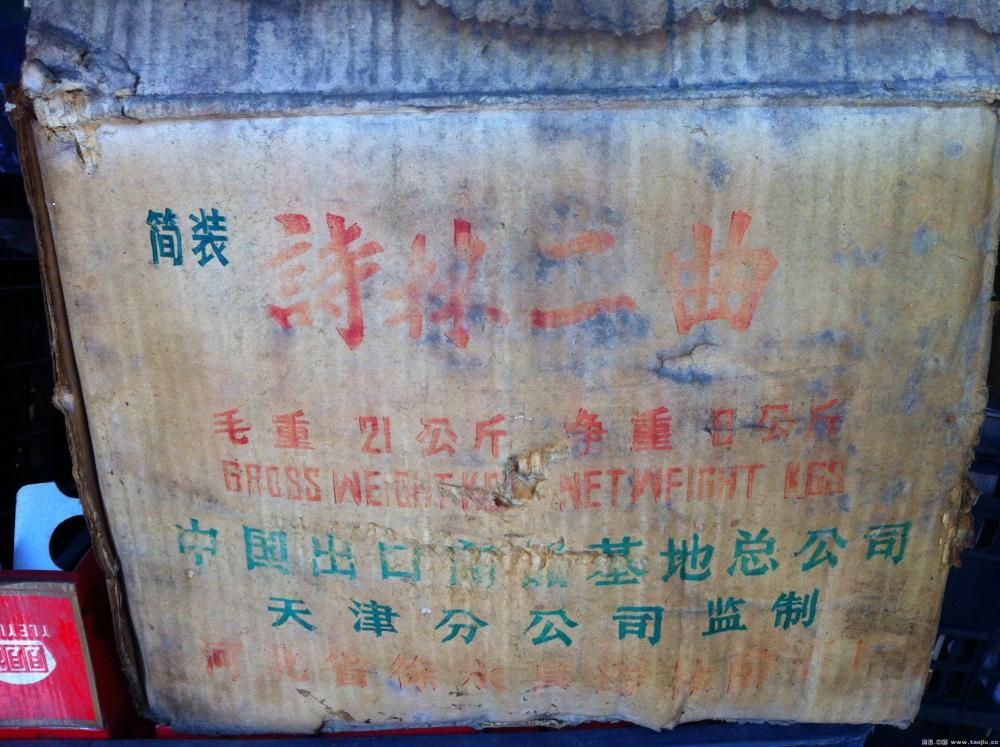 简装
詩林二曲
毛重 21公斤 净重 公斤
GROSS WEIGHT NET WEIGHT KGS
中国出口商品基地总公司
天津分公司监制
河北省徐水县詩林
www.taojiu.cc